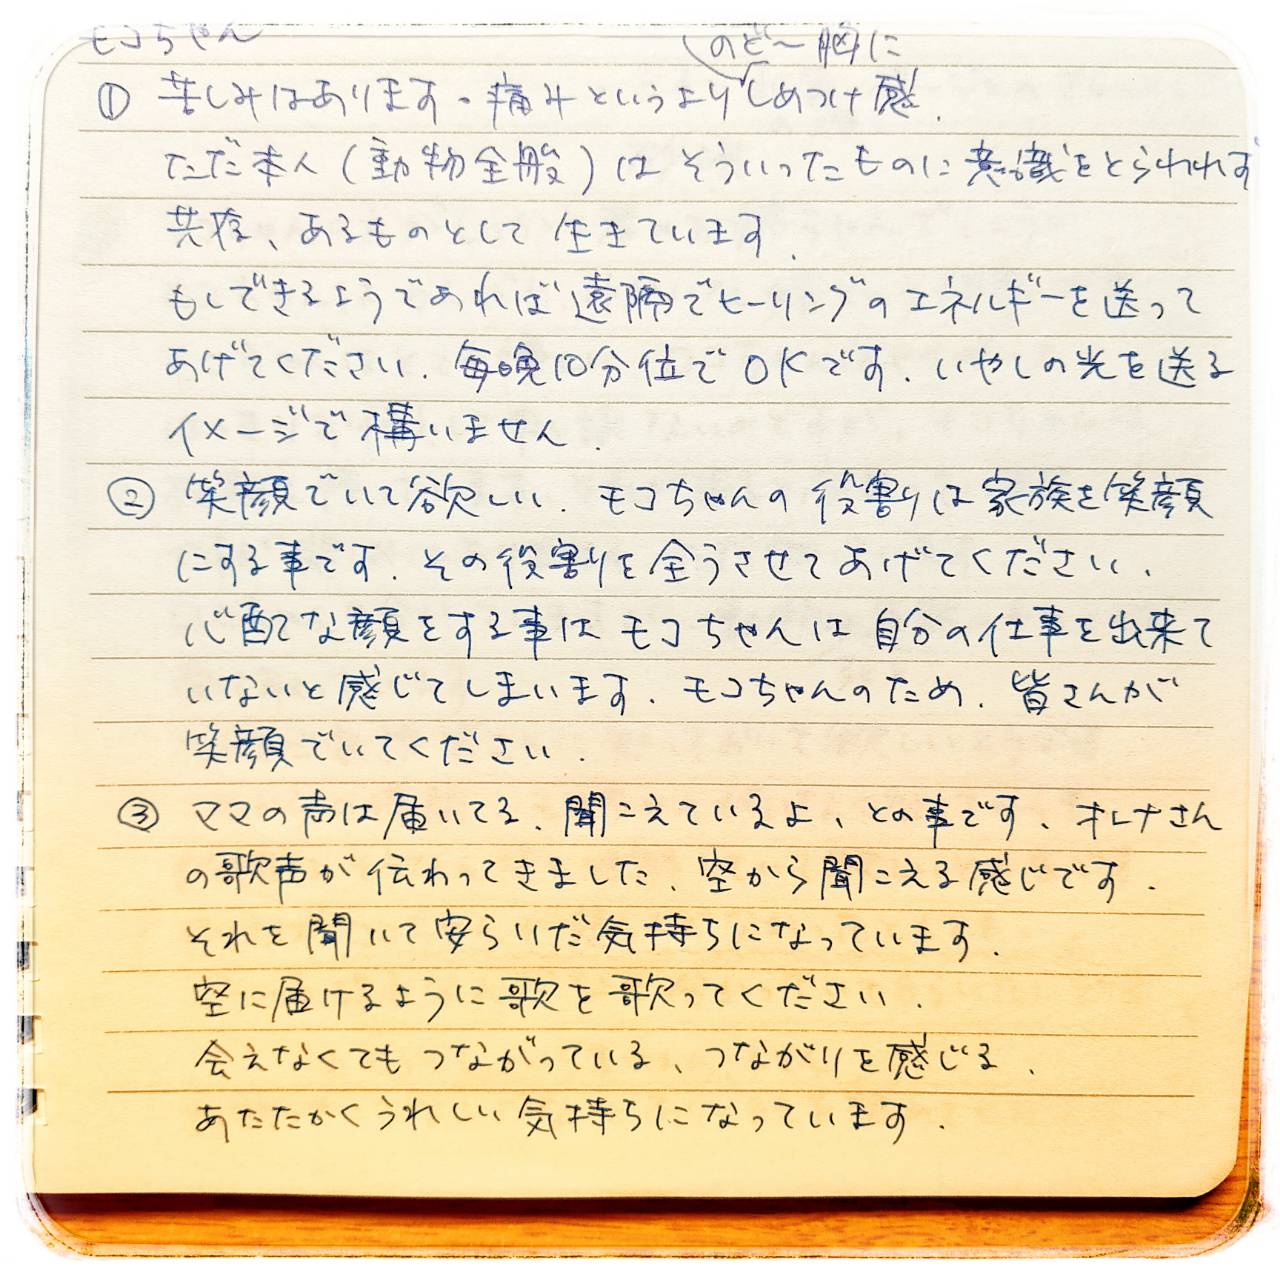 モコちゃん
のど〜胸に
① 苦しみはあります。痛みというよりしめつけ感.
ただ本人(動物全般)はそういったものに意識をとらわれず
共存、あるものとして生きています.
もしできるようであれば遠隔でヒーリングのエネルギーを送って
あげてください. 毎晩10分位でOKです. いやしの光を送る
イメージで構いません.
② 笑顔でいて欲しい. モコちゃんの役割りは家族を笑顔
にする事です. その役割りを全うさせてあげてください.
心配な顔をする事はモコちゃんは自分の仕事を出来て
いないと感じてしまいます. モコちゃんのため. 皆さんが
笑顔でいてください.
③ ママの声は届いてる、聞こえているよ、との事です. オレナさん
の歌声が伝わってきました. 空から聞こえる感じです.
それを聞いて安らいだ気持ちになっています.
空に届けるように歌を歌ってください.
会えなくてもつながっている、つながりを感じる.
あたたかくうれしい気持ちになっています.